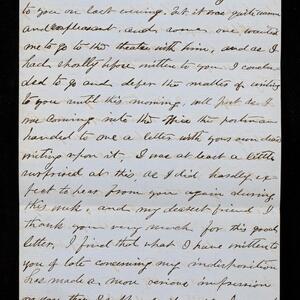 to you on last evening. but it was quite warm
and unpleasant. and some one wanted
me to go to the theatre with him, and as I
had shortly before written to you I conclu-
ded to go and defer the matter of writing
to you until this morning, well just as I
was coming into the office the postman
handed to me a letter with your own dear
writing upon it, I was at least a little
surprised at this, as I did hardly ex-
pect to hear from you again during
this week, and my dearest friend I
thank you very much for this good
letter, I find that what I have written to
you of late concerning my indisposition
has made a more serious impression